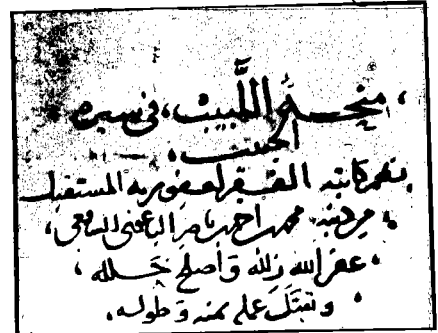 منحة اللَّبيب، في سيرة
الحبيب،
نظم كاتبه الفقير لعفو ربه المستقيل
من ذنبه محمد بن احمد بن ناصر الباعوني الشافعي،
عفر الله زلله وأصلح خلله،
وتقبَّل عمله بمنه وطوله،